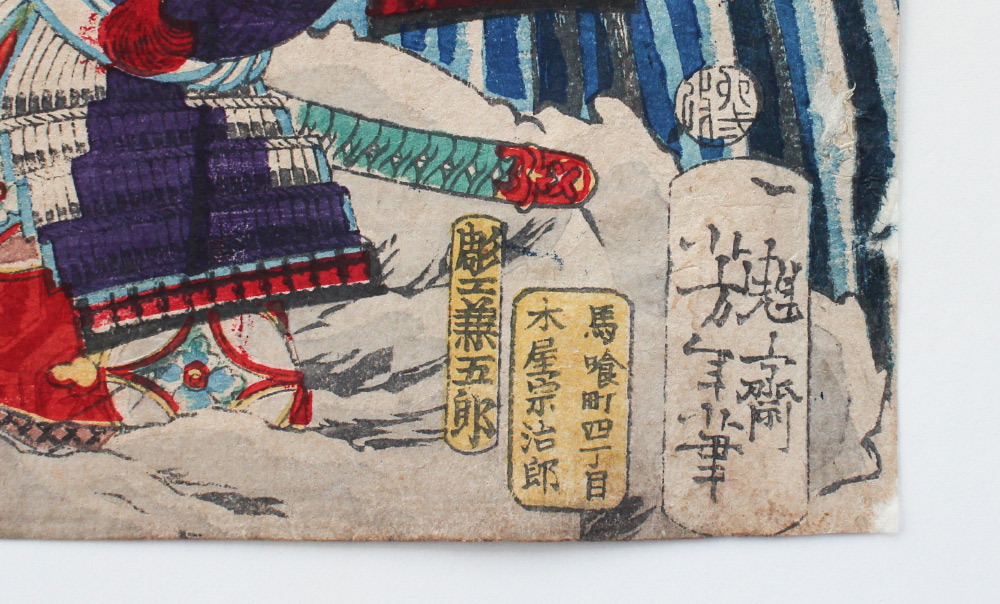 一魁齋
芳年筆
馬喰町四丁目
木屋宗治郎
彫工兼五郎